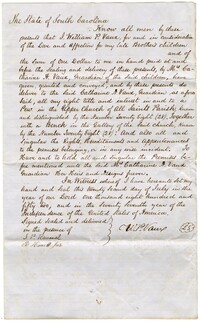 The State of South Carolina
Know all men by these
present that I William P. Vaux, for and in consideration
of the Love and Affection for my late Brothers children
and
of the Sum of One Dollar to me in hand paid at and be-
fore the Sealing and delivery of these presents by Mrs Ca-
tharine A. Vaux, Guardian of the said children, have
given, granted and conveyed, and by these presents do
deliver to the said Catharine A. Vaux, Guardian as afore
said, all my right title and interest in and to a
Pew in the Upper Church of All Saints Parish, known
and distinguished by the number Twenty Eight (28), together
with a Bench in the Gallery of the said Church, known
by the Number Twenty Eight (28); And also all and
Singular the Rights, Hereditaments and appurtenances
to the premises belonging, or in any wise incident. To
Have and to hold all and singular the Premises be-
fore mentioned unto the said Mrs Catharine A. Vaux
Guardian her Heirs and Assigns forever.
In Witness whereof I have hereunto set my
hand and Seal this twenty second day of July in the
year of our Lord one thousand eight hundred and
fifty two, and in the Seventy Seventh year of the
Independence of the United States of America.
Signed Sealed and delivered
in the presence of
W.P. Vaux